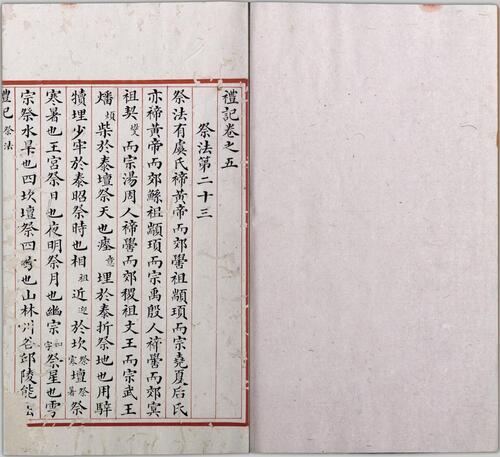 禮記卷之五
祭法第二十三
祭法有虞氏禘黃帝而郊嚳祖顓頊而宗堯夏后氏
亦禘黃帝而郊鯀祖顓頊而宗禹殷人禘嚳而郊冥
祖契而宗湯周人禘嚳而郊稷祖文王而宗武王
燔煩柴於泰壇祭天也瘞意埋於泰折祭地也用騂
犢埋少牢於泰昭祭時也相祖近迎於坎祭寒壇祭暑祭
寒暑也王宮祭日也夜明祭月也幽宗如字祭星也雩
宗祭水旱也四坎壇祭四也山林川谷邱陵能出
禮記 祭法